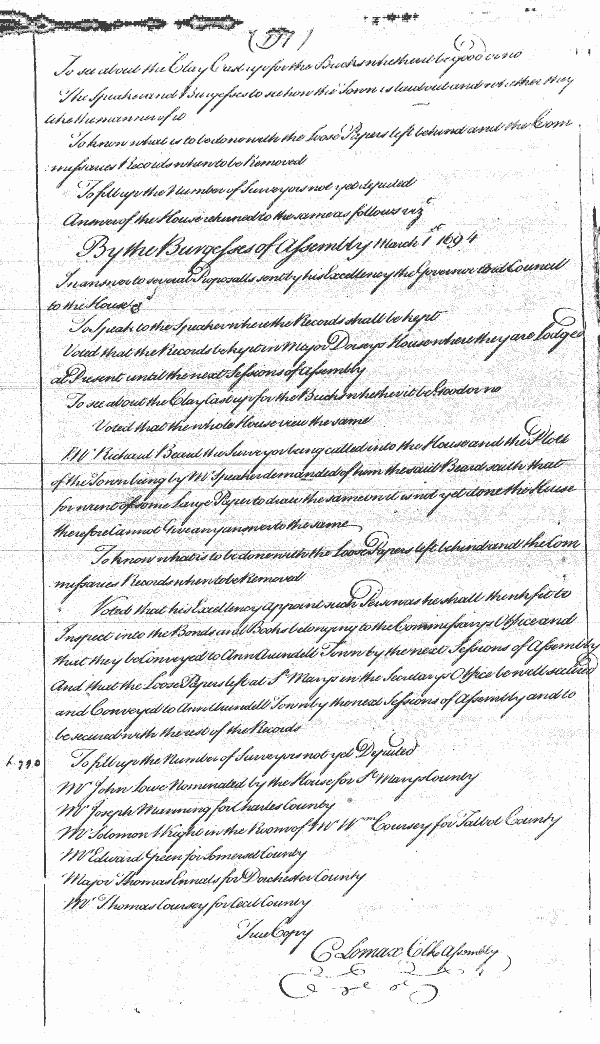 To see about the Clay Cast up for the Bricks whether it be good or no
The Speaker and Burgesses to see how the Town is laid out and whether they
like the manner of it
To know what is to be done with the Loose Papers left behind and the Com
missaries Records when to be Removed
To fill up the Number of Surveyors not yet deputed
Answer of the House returned to the same as follows vizt
By the Burgesses of Assembly March 1st 1694
In answer to several Proposalls sent by his Excellency the Governor and Council
to the House
To Speak to the Speaker where the Records shall be kept
Voted that the Records be kept in Major Dorseys House where they are lodged
at Present until the next Sessions of Assembly
To see about the Clay Cast up for the Bricks whether it be Good or no
Voted that the whole House view the same
Mr Richard Beard the Surveyor being called into the House and the Plott
of the Town being by Mr Speaker demanded of him the said Beard saith that
for want of some Large Paper to draw the same on it is not yet done the House
therefore Cannot Give any answer to the same
To know what is to be done with the Loose Papers left behind and the Com
missaries Records when to be Removed
Voted that his Excellency appoint such Person as he shall think fit to
Inspect into the Bonds and Books belonging to the Commissarys Office and
that they be Conveyed to Ann Arundell Town by the next Sessions of Assembly
And that the Loose Papers left at St Marys in the Secretarys Office be well secured
and Conveyed to Ann Arundell Town by the next Sessions of Assembly and to
be secured with the rest of the Records
To fill up the Number of Surveyors not yet Deputed
Mr John Lowe Nominated by the House for St Marys County
Mr Joseph Manning for Charles County
Mr Solomon Wright in the Room of Mr Wm Coursey for Talbot County
Mr Edward Green for Somerset County
Major Thomas Ennals for Dorchester County
Mr Thomas Coursey for Cecil County
True Copy
C Lomax Clk Assembly